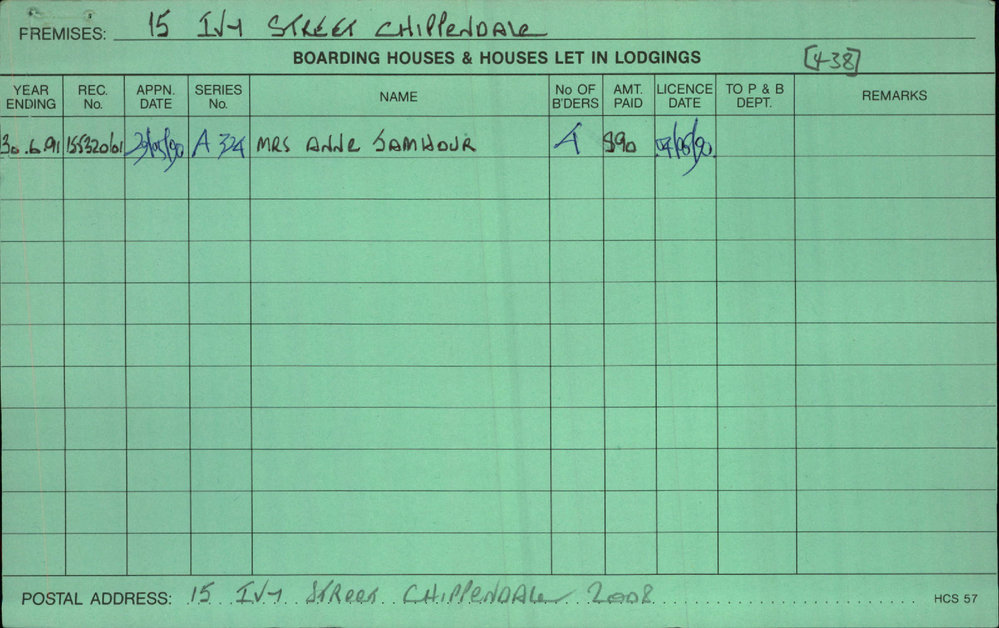 PREMISES: 15 IVY STREET CHIPPENDALE
BOARDING HOUSES & HOUSES LET IN LODGINGS [438]
YEAR ENDING REC. No. APPN. DATE SERIES No. NAME No OF B'DERS AMT. PAID LICENCE DATE TO P & B DEPT. REMARKS
30.6.91 A 324 MRS ANNE SAMHOUR 4 $90
POSTAL ADDRESS: 15 IVY STREET CHIPPENDALE 2008 HCS 57